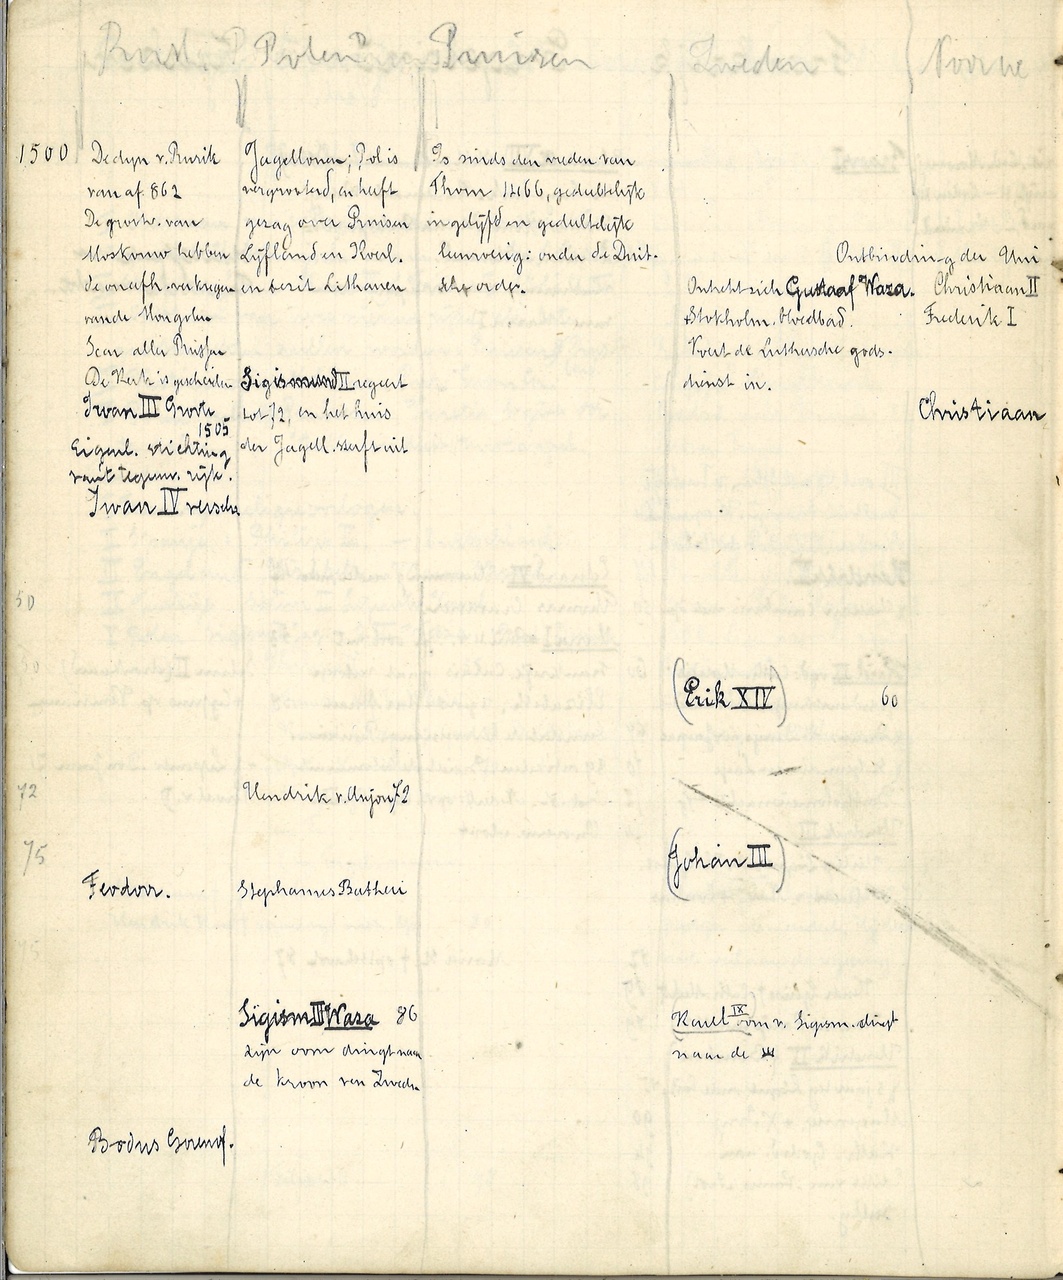 Rusl. Polen Pruisen Zweden Noorwe
1500
De dyn. v. Rurik
van af 862
De grootv. van
Moskouw hebben
de onafh. verkregen
van de Mongolen
Tzar aller Russen
De Kerk is gescheiden
Iwan III Groote
1505
Eigenl. stichting
van't tegenw. rijk.
Iwan IV verschr.
Feodor.
Bodus Godunof.
Jagellonen; Pol is
vergrooterd, en heeft
gezag over Pruisen
Lijfland en Koerl.
en bezit Lithauen
Sigismund II regeert
tot 72, en het huis
der Jagell. sterft uit
Hendrik v. Anjou 72
Stephanus Bathori
Sigism III Waza 86
zijn oom dingt naar
de kroon van Zweden
Is sinds den vrede van
Thorn 1466, gedeeltelijk
ingelijfd en gedeeltelijk
leenroerig: onder de Duit-
sche orde.
Ontbinding der Uni
Ontrekt zich Gustaaf Waza.
Stokholm. bloedbad.
Voert de Luthersche gods-
dienst in.
(Erik XIV) 60
(Johan III)
Karel IX oom v. Sigism. dingt
naar de
Christiaan II
Frederik I
Christiaan
50
60
72
75
75